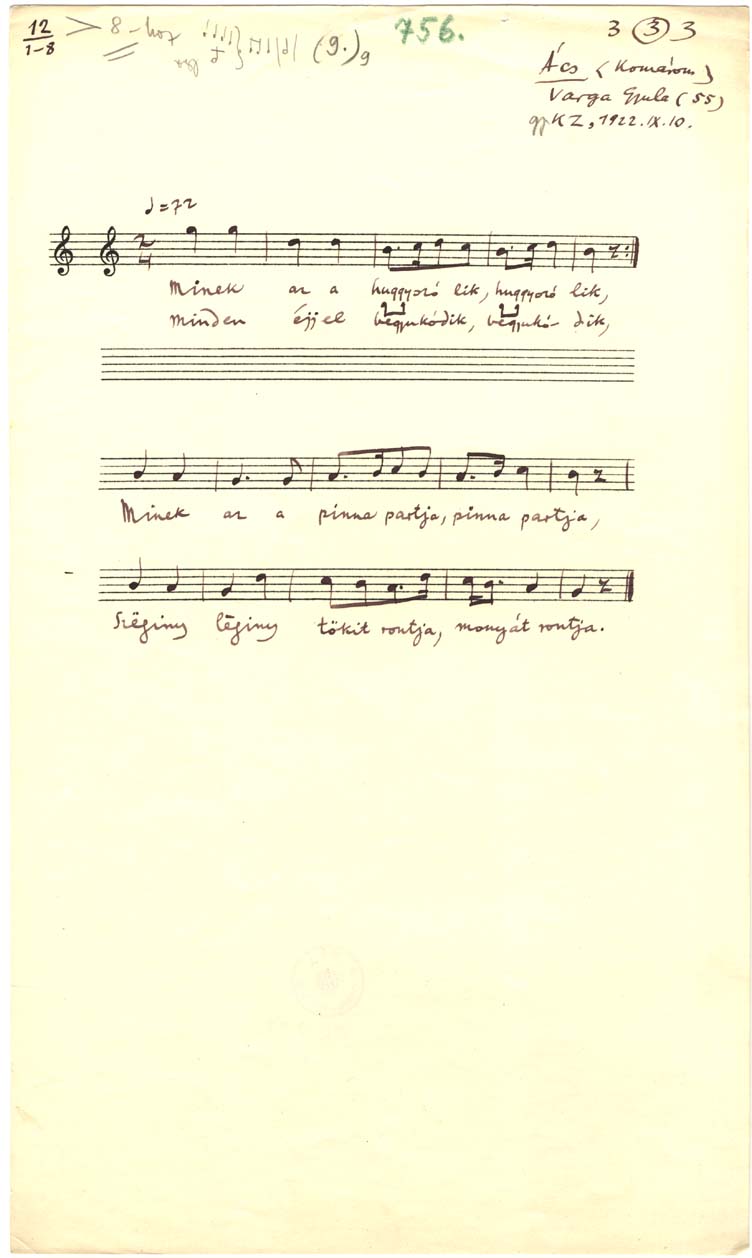 12
1-8
8-hoz
(9.)9
756.
3 3 3
Ács (Komárom)
Varga Gyula (55)
gy KZ, 1922.IX.10.
♩=72
2
4
Minek az a huggyozó lik, huggyozó lik,
minden éjjel végyukódik, végyukó-dik,
Minek az a pinna partja, pinna partja,
Szëgíny lëgíny tökit rontja, monyát rontja.